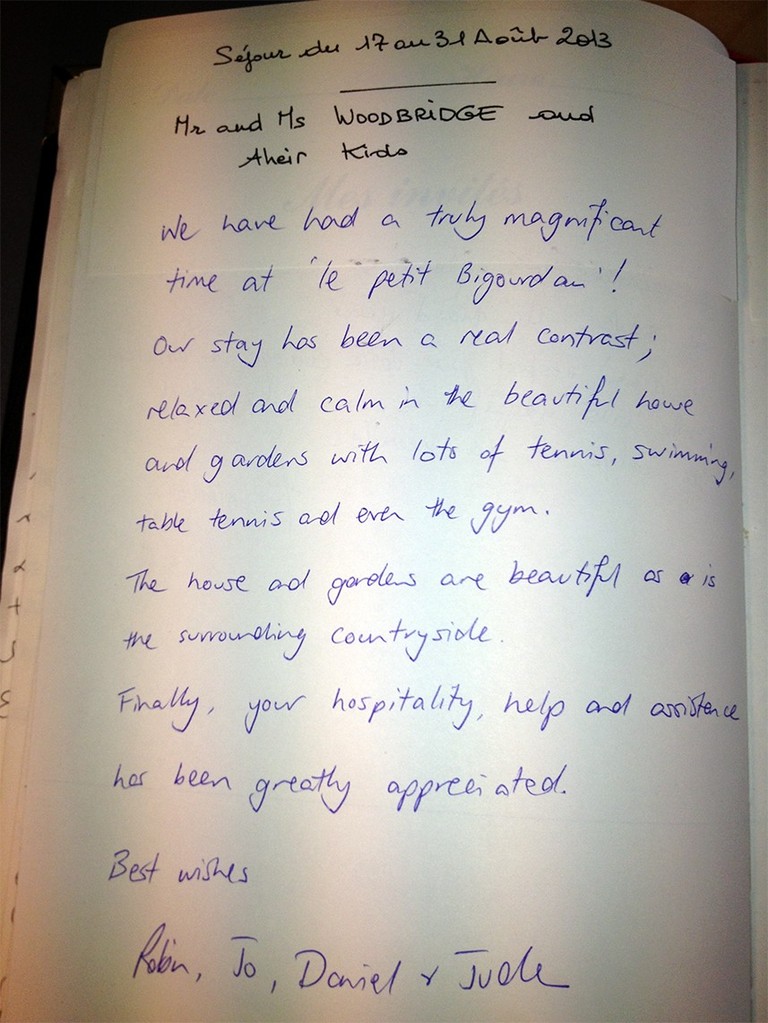 Séjour du 17 au 31 Août 2013
Mr and Ms WOODBRIDGE and
their Kids
We have had a truly magnificant
time at 'le petit Bigourdan'!
Our stay has been a real contrast;
relaxed and calm in the beautiful house
and gardens with lots of tennis, swimming,
table tennis and even the gym.
The house and gardens are beautiful as is
the surrounding countryside.
Finally, your hospitality, help and assistence
has been greatly appreciated.
Best wishes
Robin, Jo, Daniel & Jude